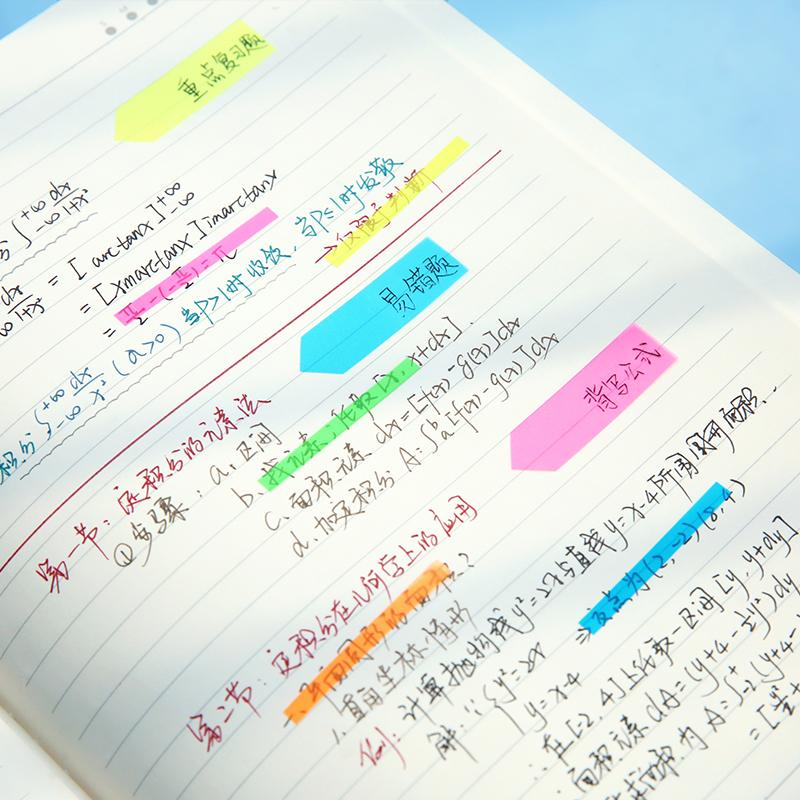 重点复习题
∫ +∞ -∞ dx/1+x²
dx/1+x² = [arctanx] +∞ -∞
= [xmarctanx]imarctanx
= π/2 - (-π/2) = π
积分 ∫ +∞ -∞ dx/x² (a>0) 当P>1时收敛，当P≤1时发散
→仅限于判断
易错题
第一节：定积分的元素法
①步骤：a. 区间
b. 找元素；任取[x, x+dx].
c. 面积元素 dx=[f(x)-g(x)]dx
d. 加定积分 A:∫ba[f(x)-g(x)]dx
背写公式
第二节：定积分在几何学上的应用
一、平面图形的面积
1. 直角坐标情形
例：计算抛物线y²=2x与直线y=x-4所围图形面积
解：{y²=2x
y=x-4
⇒交点为(2,-2)(8,4)
∴在[-2,4]上任取一区间[y,y+dy]
面积元素dA=(y+4-½y²)dy
面积为A=∫-2(y+4-
=[